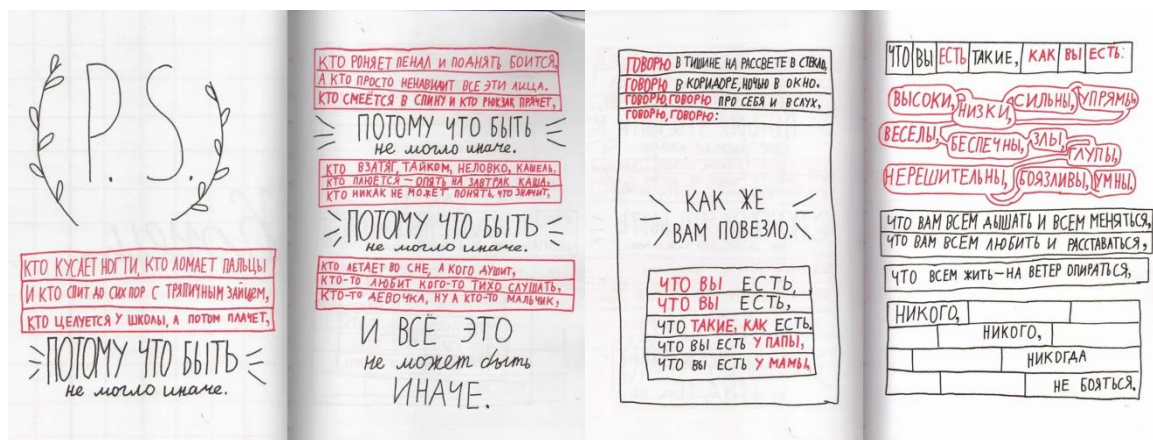 P. S.
КТО КУСАЕТ НОГТИ, КТО ЛОМАЕТ ПАЛЬЦЫ
И КТО СПИТ ДО СИХ ПОР С ТРЯПИЧНЫМ ЗАЙЦЕМ,
КТО ЦЕЛУЕТСЯ У ШКОЛЫ, А ПОТОМ ПЛАЧЕТ,
ПОТОМУ ЧТО БЫТЬ
не могло иначе.
КТО РОНЯЕТ ПЕНАЛ И ПОДНЯТЬ БОИТСЯ,
А КТО ПРОСТО НЕНАВИДИТ ВСЕ ЭТИ ЛИЦА.
КТО СМЕЁТСЯ В СПИНУ И КТО РЮКЗАК ПРЯЧЕТ,
ПОТОМУ ЧТО БЫТЬ
не могло иначе.
КТО ВЗАТЯГ, ТАЙКОМ, НЕЛОВКО, КАШЕЛЬ,
КТО ПЛЮЕТСЯ — ОПЯТЬ НА ЗАВТРАК КАША.
КТО НИКАК НЕ МОЖЕТ ПОНЯТЬ, ЧТО ЗНАЧИТ,
ПОТОМУ ЧТО БЫТЬ
не могло иначе.
КТО ЛЕТАЕТ ВО СНЕ, А КОГО ДУШИТ,
КТО-ТО ЛЮБИТ КОГО-ТО ТИХО СЛУШАТЬ,
КТО-ТО ДЕВОЧКА, НУ А КТО-ТО МАЛЬЧИК,
И ВСЁ ЭТО
не может быть
ИНАЧЕ.
ГОВОРЮ В ТИШИНЕ НА РАССВЕТЕ В СТЕКЛО,
ГОВОРЮ В КОРИДОРЕ, НОЧЬЮ В ОКНО.
ГОВОРЮ, ГОВОРЮ ПРО СЕБЯ И ВСЛУХ,
ГОВОРЮ, ГОВОРЮ:
КАК ЖЕ
ВАМ ПОВЕЗЛО.
ЧТО ВЫ ЕСТЬ,
ЧТО ВЫ ЕСТЬ,
ЧТО ТАКИЕ, КАК ЕСТЬ.
ЧТО ВЫ ЕСТЬ У ПАПЫ,
ЧТО ВЫ ЕСТЬ У МАМЫ,
ЧТО ВЫ ЕСТЬ ТАКИЕ, КАК ВЫ ЕСТЬ:
ВЫСОКИ, НИЗКИ, СИЛЬНЫ, УПРЯМЫ,
ВЕСЕЛЫ, БЕСПЕЧНЫ, ЗЛЫ, ГЛУПЫ,
НЕРЕШИТЕЛЬНЫ, БОЯЗЛИВЫ, УМНЫ.
ЧТО ВАМ ВСЕМ ДЫШАТЬ И ВСЕМ МЕНЯТЬСЯ,
ЧТО ВАМ ВСЕМ ЛЮБИТЬ И РАССТАВАТЬСЯ,
ЧТО ВСЕМ ЖИТЬ — НА ВЕТЕР ОПИРАТЬСЯ,
НИКОГО,
НИКОГО,
НИКОГДА
НЕ БОЯТЬСЯ.